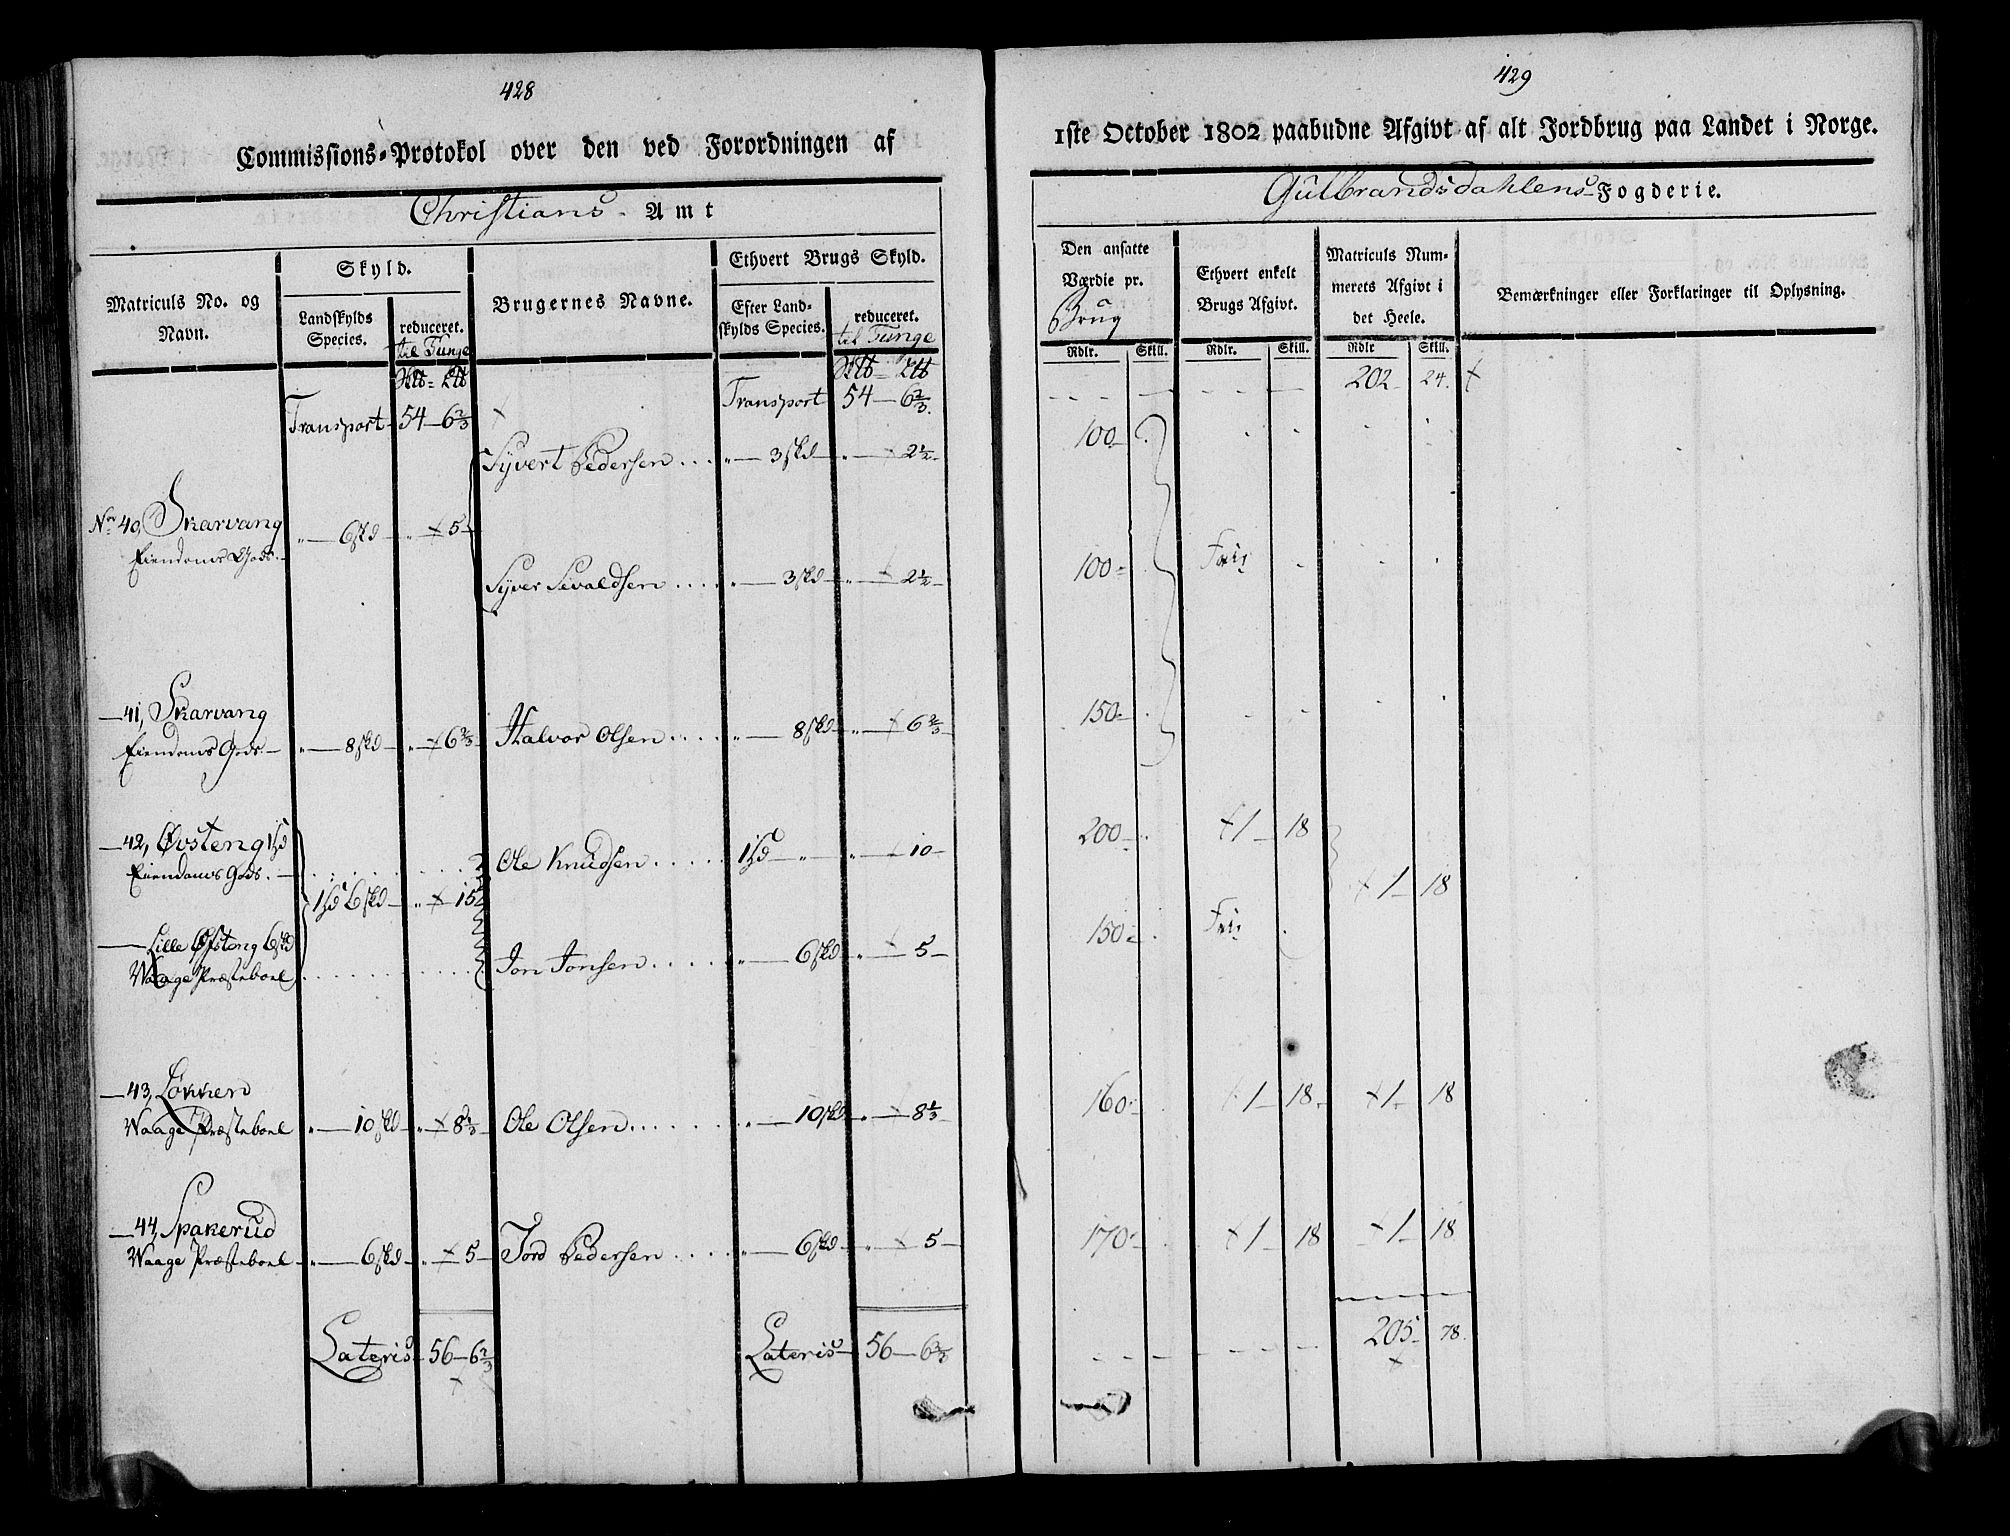 428
Commissions-Protokol over den ved Forordningen af
Christians Amt
Matriculs No. og Navn.
Skyld.
Landskylds Species.
reduceret. til Tunge
Brugernes Navne.
Ethvert Brugs Skyld.
Efter Landskylds Species.
reduceret. til Tunge
Transport 54 — 6 2/3 Transport 54 — 6 2/3.
Syvert Pedersen . . . „ — 3 skd — „ — 2 1/2 —
No 40, Skarvang
Eiendoms Gods. — „ — 6 skd — „ — 5 —
Syver Sivaldsen . . . . „ — 3 skd — „ — 2 1/2 —
— 41, Skarvang
Eiendoms Gods — „ — 8 skd — „ — 6 2/3 Halvor Olsen . . . . „ — 8 skd — „ — 6 2/3 —
— 42, Øvsteng 1 hd
Eiendoms Gods. — Ole Knudsen . . . . . 1 hd — „ — „ — 10 —
1 hd 6 skd — „ — 15
— Lille Øfsteng 6 skd
Waage Præsteboel . . . . . . . Jon Jonsen . . . . . „ — 6 skd — „ — 5 —
— 43, Løkken
Waage Præsteboel „ — 10 skd — „ — 8 1/3 — Ole Olsen . . . . . . „ — 10 skd — „ — 8 1/3 —
— 44, Spakerud
Waage Præsteboel — „ — 6 skd — „ — 5 — Tord Pedersen . . . . „ — 6 skd — „ — 5 —
Lateris — 56 — 6 2/3 Lateris — 56 — 6 2/3
429
1ste October 1802 paabudne Afgivt af alt Jordbrug paa Landet i Norge.
Gulbrandsdahlens Fogderie.
Den ansatte Værdie pr. Brug
Ethvert enkelt Brugs Afgivt.
Matriculs Nummerets Afgivt i det Heele.
Bemærkninger eller Forklaringer til Oplysning.
Rdlr. Skill. Rdlr. Skill. Rdlr Skill.
202 — 24.
100 —
100 — Frie
150 —
200 — 1 — 18
1 — 18
150 — Frie
160 — 1 — 18. 1 — 18
170 — 1 — 18 1 — 18
205 — 78.